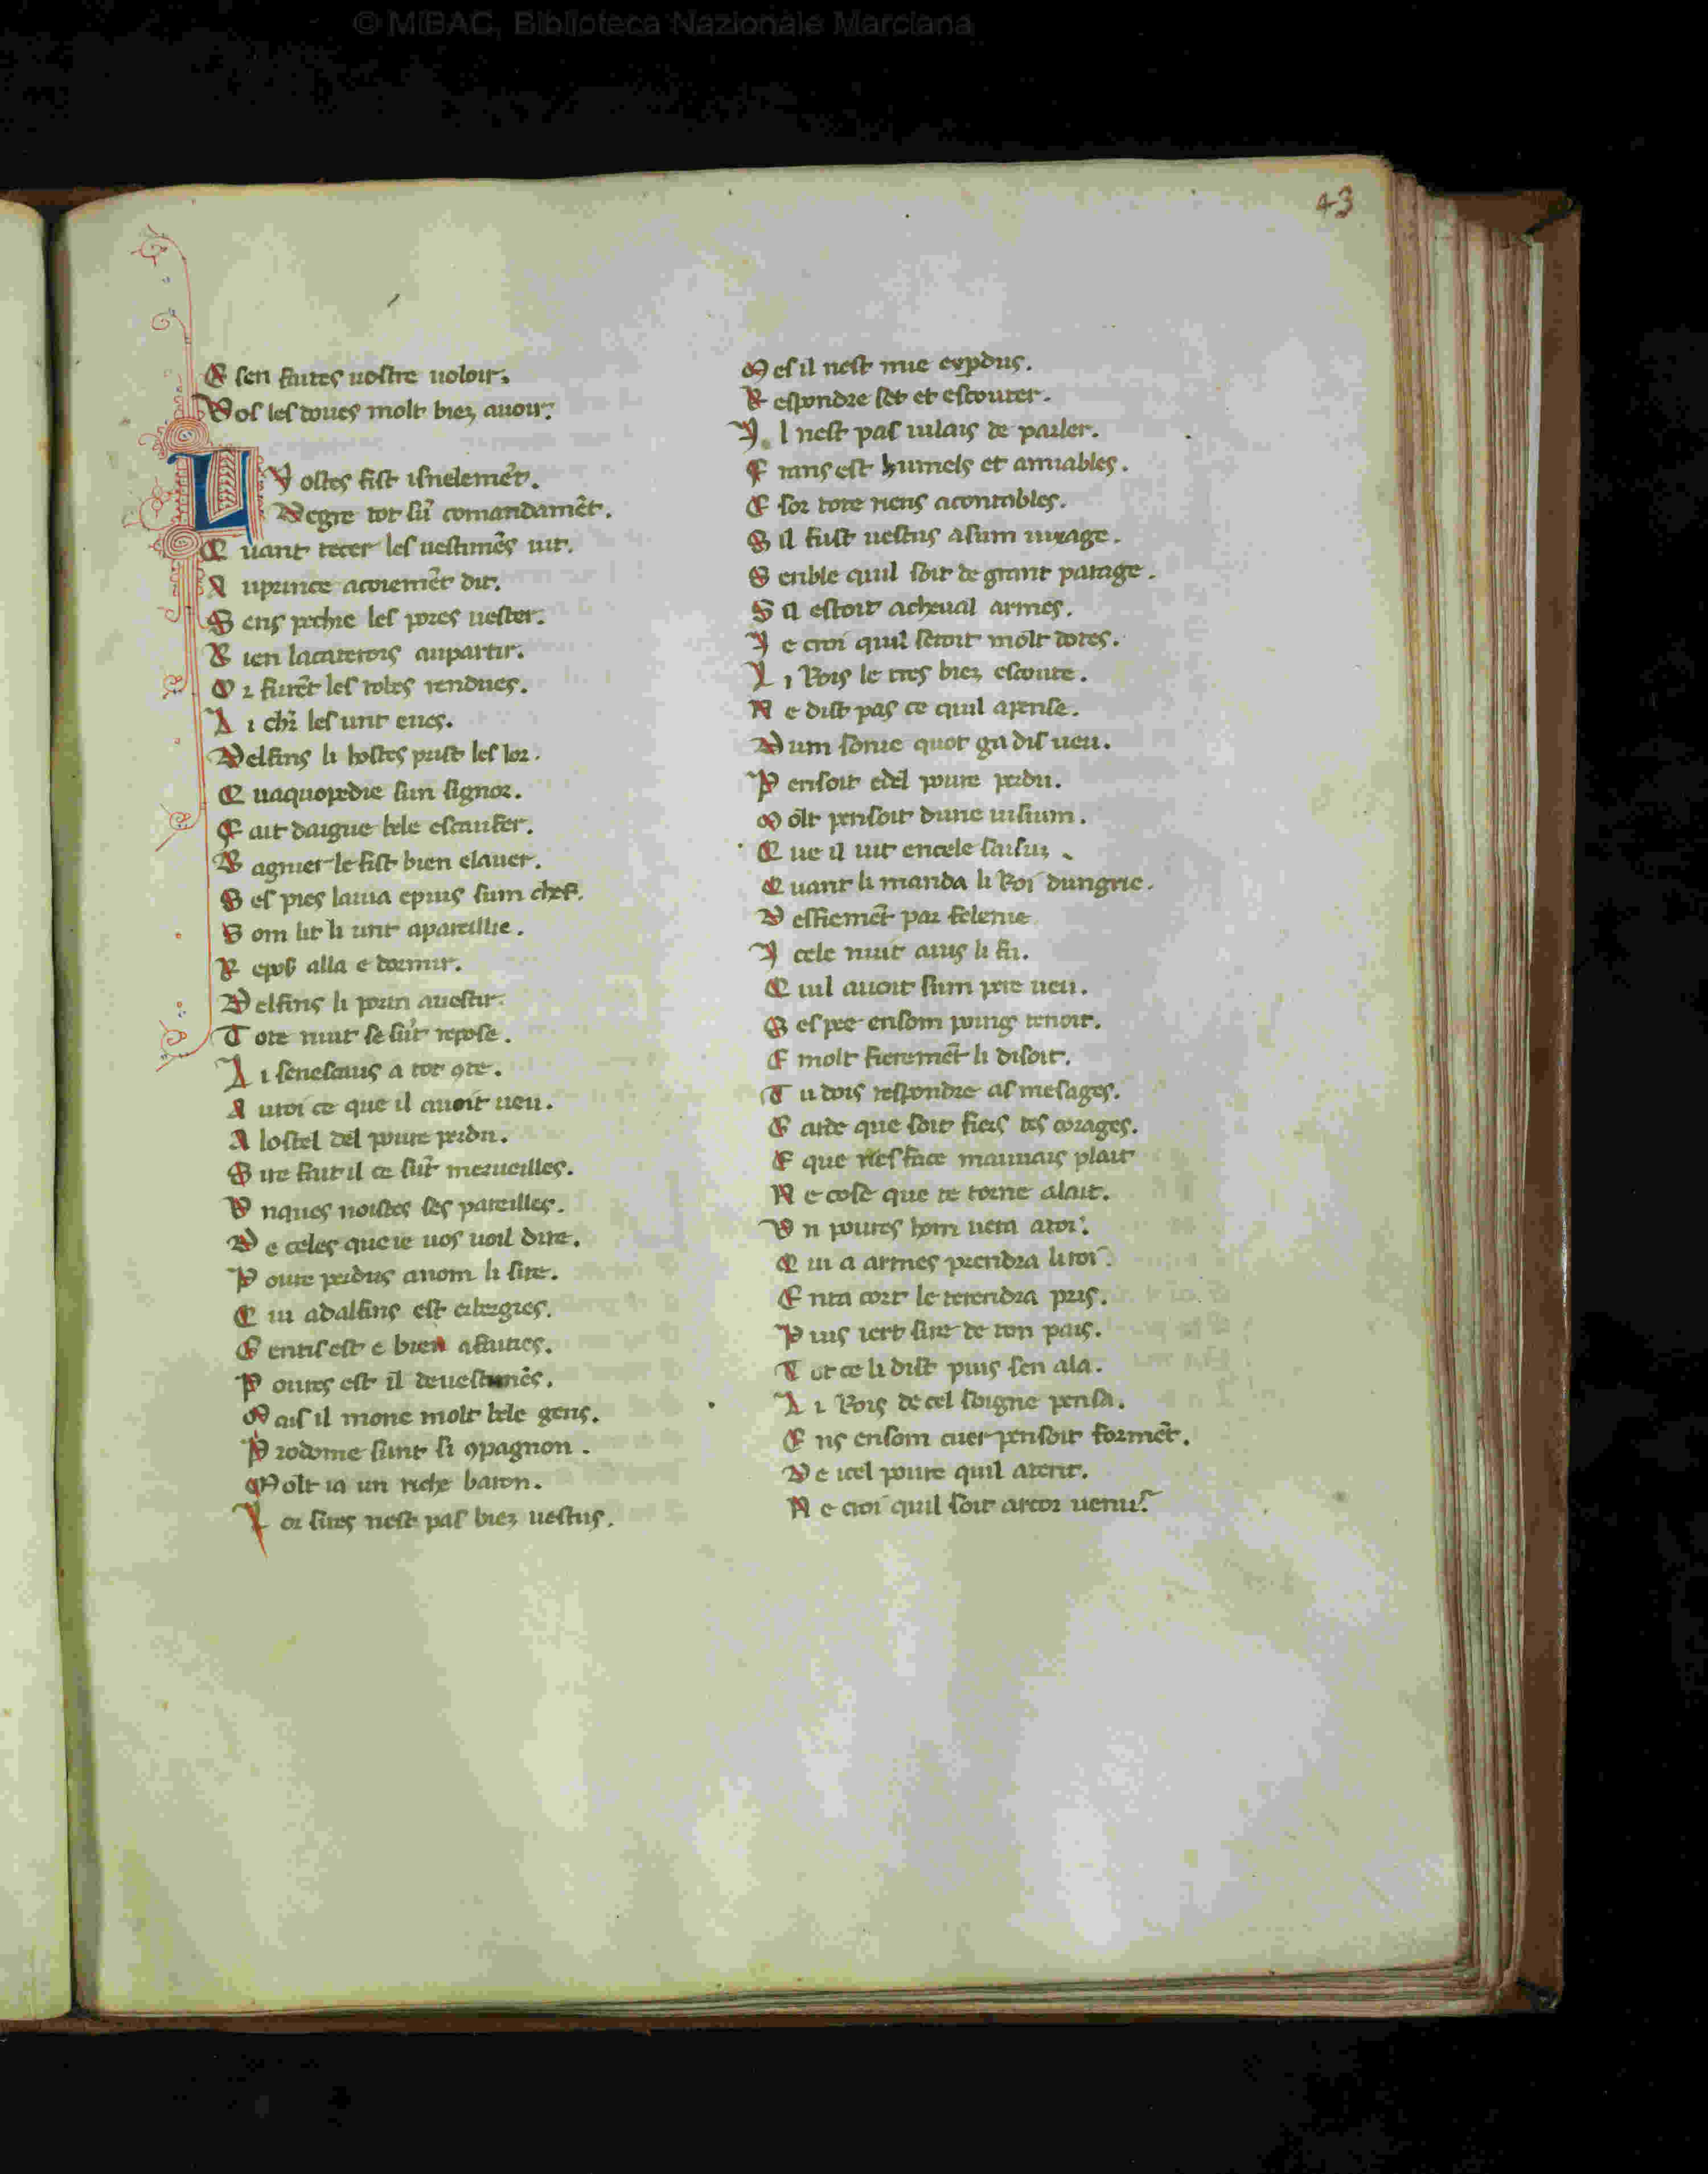 © MiBAC, Biblioteca Nazionale Marciana
43
E sen faites uostre uoloir.
Vos les doues molt biez auoir.
L I ostes fist isnelemēt.
Degre tot sū comandamēt.
Q uant tecer les uestimēs uit.
A uprince acoiemēt dit.
S ens pechie les pores uester.
B ien lacaterois aupartir.
O r furēt les robes rendues.
L i chr̄ les unt eues.
Delfins li hostes prist les lor.
Q uaquoperdie sun signor.
F ait daigue bele escaufer.
B agnier le fist bien elauer.
S es pies laua epuis sum chef.
S om lit li unt apareillie.
R epos alla e dormir.
Delfins li prin auestir.
T ote nuit se sūt repose.
L i senescaus a tot ɔte.
A uroi ce que il auoit ueu.
A lostel del poure perdu.
S ire fait il ce sūt merueilles.
V nques noistes ses pareilles.
D e celes que ie uos uoil dire.
P oure perdus anom li sire.
Q ui adalfins est erbergies.
G entis est e bien afaities.
P oures est il deuestimēs.
M ais il mone molt bele gens.
P rodome sunt si ɔpagnon.
M olt ia un riche baron.
L or sires nest pas biez uestus.
M es il nest mie experdus.
R espondre set et escouter.
I l nest pas uilais de parler.
F rans est humels et amiables.
E sor tote riens acontables.
S il fust uestus asum uiage.
S enble quil soit de grant parage.
S il estoit acheual armes.
I e croi quil seroit molt dotes.
L i Rois le tres biez escoute.
N e dist pas ce quil apense.
D um sonie quot ga dis ueu.
P ensoit edel poure perdu.
M olt pensoit dune uisium.
Q ue il uit encele saisuz.
Q uant li manda li Roi dungrie.
D esfiemēt par felenie
I cele nuit auis li fu.
Q uil auoit sum pere ueu.
S espee ensom poing tenoit.
E molt fieremēt li disoit.
T u dois respondre as mesages.
G arde que soit fiers tes corages.
E que nes face mauuais plait
N e cose que te torne alait.
V n poures hom uera atoi.
Q ui a armes prendra li roi.
E nta cort le retendra pris.
P uis iert sire de ton pais.
T ot ce li dist puis sen ala.
L i Rois de cel soigne pensa.
E ns ensom cuer pensoit formēt.
D e icel poure quil atent.
N e croi quil soit arcor uenus.